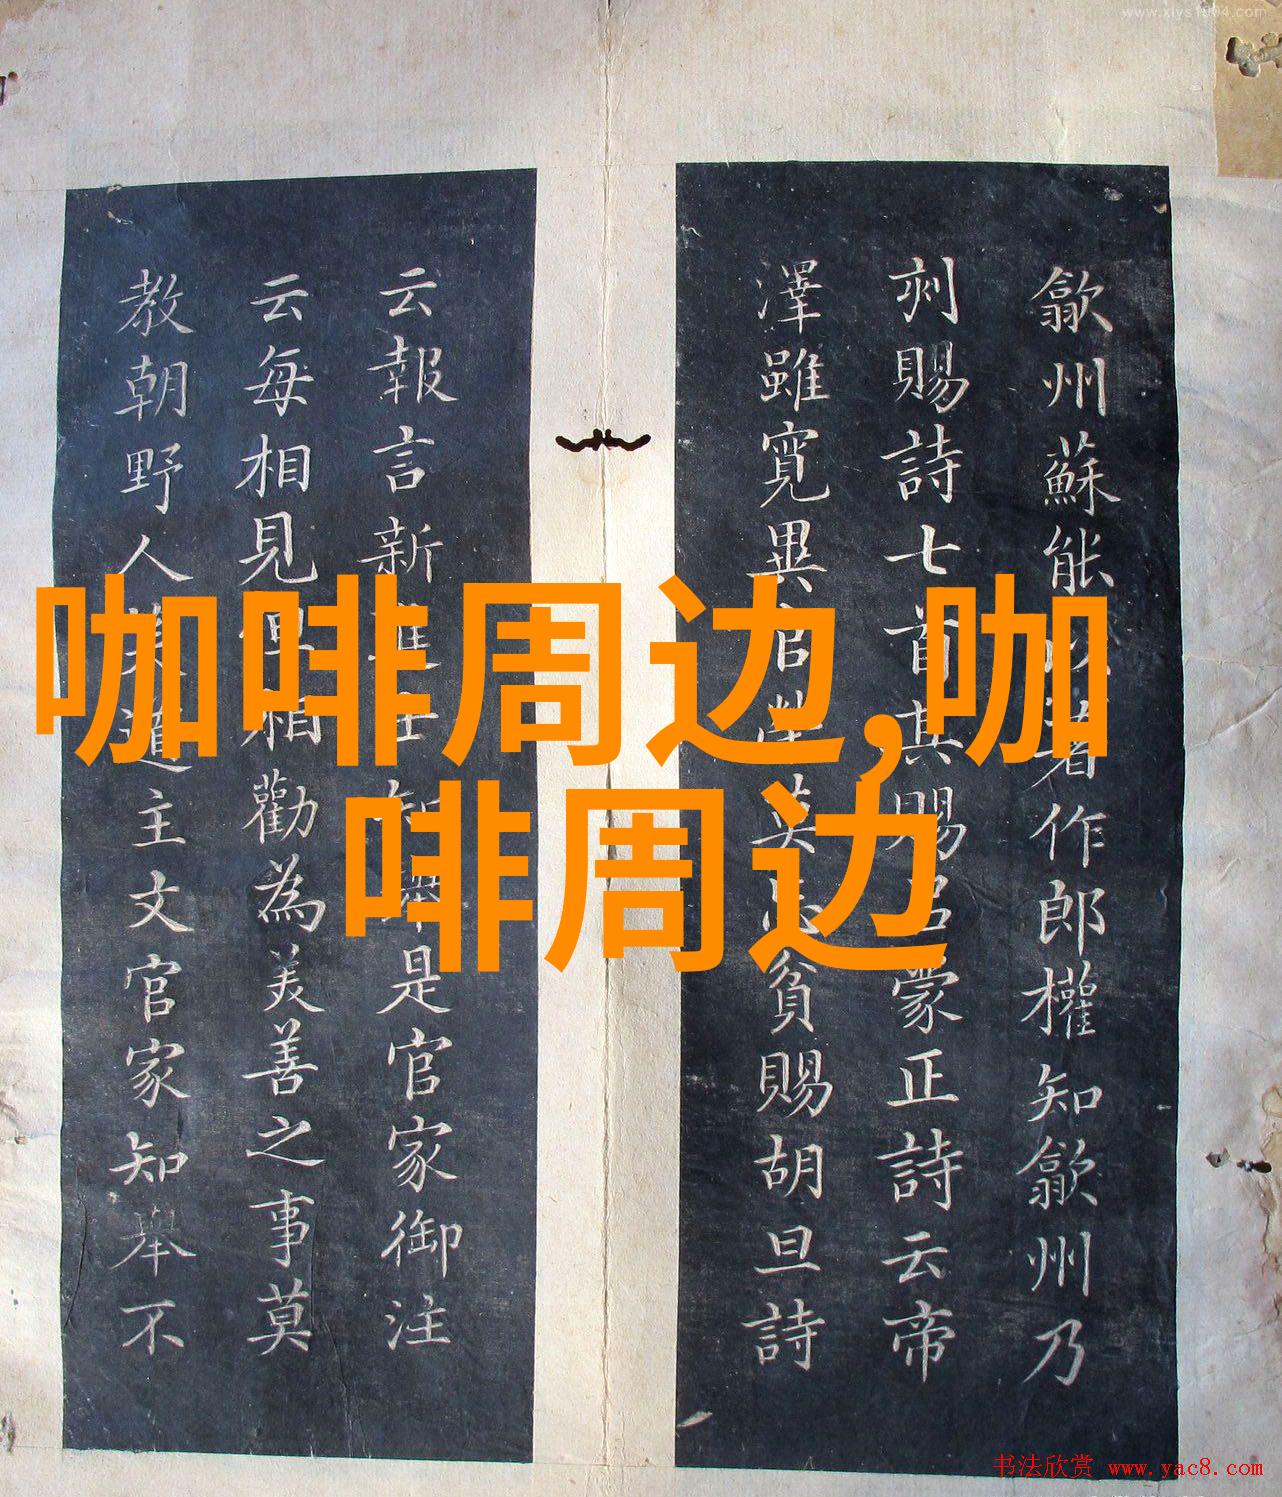 咖啡周边,咖
啡周边
歙州蘇能著作郎權知歙州乃
刻賜詩七首其賜呂蒙正詩云帝
澤雖寬異官榮莫忘貧賜胡旦詩
云報言新進士知舉是官家御注
云每相見但相勸為美善之事莫
教朝野人笑道主文官家知舉不
书法欣赏 www.yac8.com